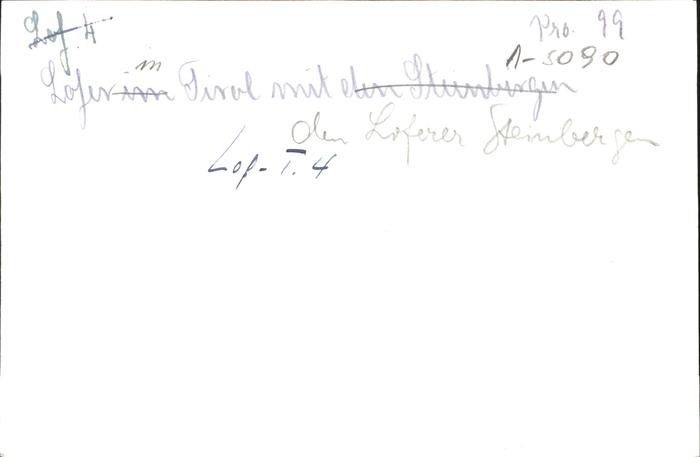 Lof. 4
Pro. 99
A-5090
in
Lofer im Tirol mit den Steinbergen
den Loferer Steinbergen
Lof- I. 4